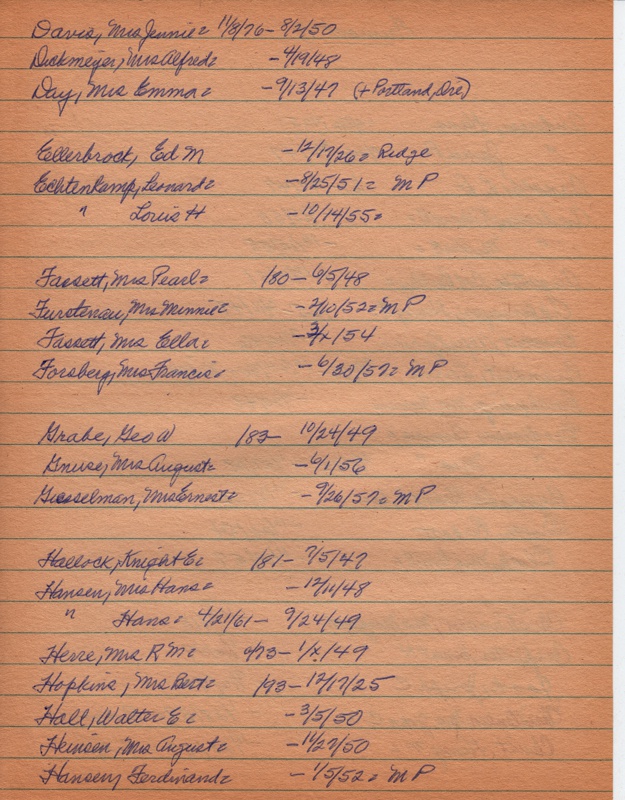 Davis, Mrs Jennie = 11/8/76 - 8/2/50
Dickmeyer, Mrs Alfred = - 4/19/48
Day, Mrs Emma = - 9/13/47 (+ Portland, Ore)
Ellerbrock, Ed M - 12/17/26 = Ridge
Echtenkamp, Leonard = - 8/25/51 = M P
" Louis H - 10/14/55 =
Fassett, Mrs Pearl = /80 - 6/5/48
Furstenau, Mrs Minnie = - 2/10/52 = M P
Fassett, Mrs Ella = - 3/x/54
Forsberg, Mrs Francis = - 6/30/57 = M P
Grabe, Geo W /83 - 10/24/49
Gnuse, Mrs August = - 6/1/56
Giesselman, Mrs Ernest = - 9/26/57 = M P
Hallock, Knight E = /81 - 7/5/47
Hansen, Mrs Hans = - 12/11/48
" Hans = 4/21/61 - 9/24/49
Herre, Mrs R M = /73 - 1/x/49
Hopkins, Mrs Bert = /93 - 12/17/25
Hall, Walter E = - 3/5/50
Heinsen, Mrs August = - 11/27/50
Hansen, Ferdinand = - 1/5/52 = M P